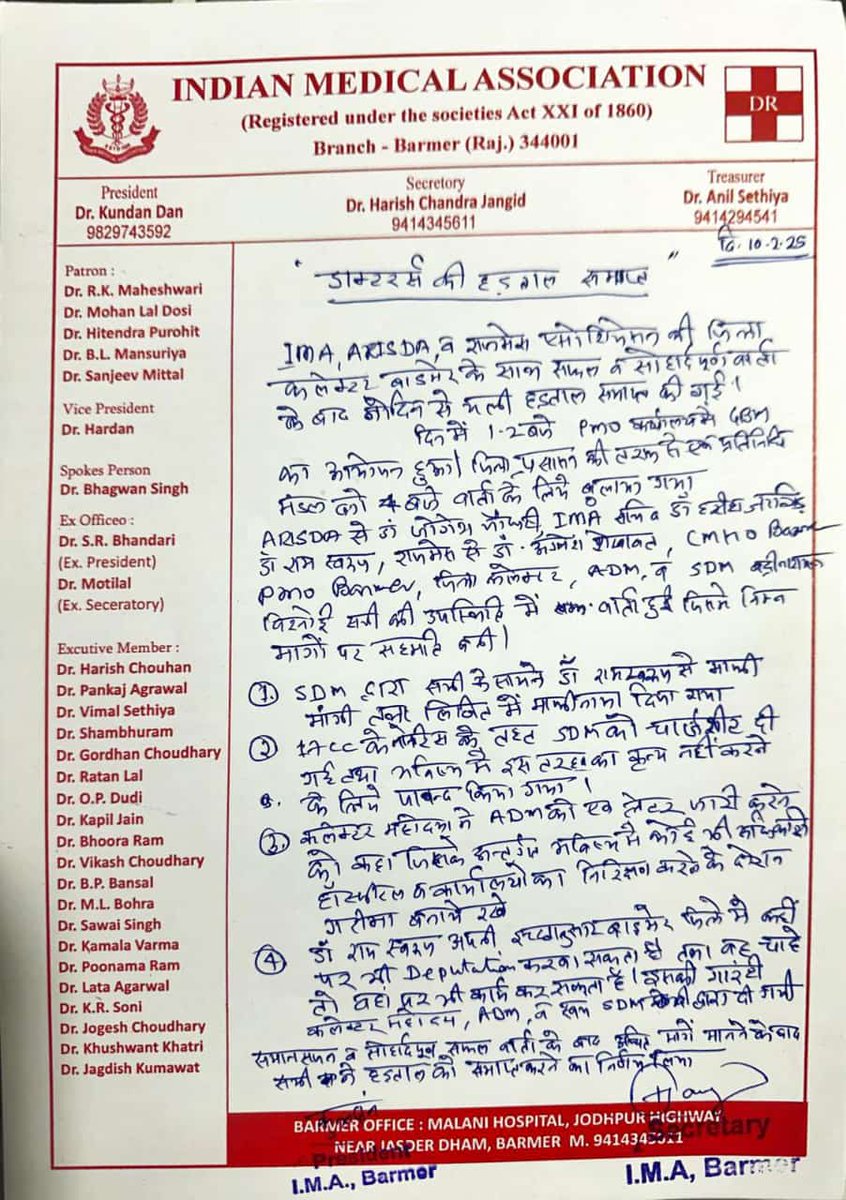 INDIAN MEDICAL ASSOCIATION
(Registered under the societies Act XXI of 1860)
Branch - Barmer (Raj.) 344001
DR
President
Dr. Kundan Dan
9829743592
Secretary
Dr. Harish Chandra Jangid
9414345611
Treasurer
Dr. Anil Sethiya
9414294541
Patron :
Dr. R.K. Maheshwari
Dr. Mohan Lal Dosi
Dr. Hitendra Purohit
Dr. B.L. Mansuriya
Dr. Sanjeev Mittal
Vice President
Dr. Hardan
Spokes Person
Dr. Bhagwan Singh
Ex Officeo :
Dr. S.R. Bhandari
(Ex. President)
Dr. Motilal
(Ex. Seceratory)
Excutive Member :
Dr. Harish Chouhan
Dr. Pankaj Agrawal
Dr. Vimal Sethiya
Dr. Shambhuram
Dr. Gordhan Choudhary
Dr. Ratan Lal
Dr. O.P. Dudi
Dr. Kapil Jain
Dr. Bhoora Ram
Dr. Vikash Choudhary
Dr. B.P. Bansal
Dr. M.L. Bohra
Dr. Sawai Singh
Dr. Kamala Varma
Dr. Poonama Ram
Dr. Lata Agarwal
Dr. K.R. Soni
Dr. Jogesh Choudhary
Dr. Khushwant Khatri
Dr. Jagdish Kumawat
दि. 10-2-25
" डाक्टरर्स की हड़ताल समाप्त "
IMA, ARISDA, व राजमेस एसोशियेसन की जिला
कलेक्टर बाडमेर के साथ सफल व सोहार्दपूर्ण वार्ता
के बाद दिन से चली हडताल समाप्त की गई।
दिन में 1-2 बजे PMO कार्यालय में GBM
का आयोजन हुआ। जिला प्रसासन की तरफ से एक प्रतिनिधि
मंडल को 4 बजे वार्ता के लिये बुलाया गया
ARISDA से डॉ जोगेश चौधरी, IMA सचिव डॉ हरीश जांगिड़
डॉ राम स्वरूप, राजमेस से डॉ. शेखावत, CMHO Barmer
PMO Barmer, जिला कलेक्टर, ADM, व SDM बद्रीनारायण
विश्नोई सभी की उपस्थिति में वार्ता हुई जिसमे निम्न
मांगों पर सहमति बनी।
① SDM द्वारा सभी के सामने डॉ रामस्वरूप से माफी
मांगी तथा लिखित में माफीनामा दिया गया
② 17CC के नोटिस के तहत SDM को चार्जशीट दी
गई तथा भविष्य मे इस तरह का कृत्य नहीं करने
के लिये पाबन्द किया गया।
③ कलेक्टर महोदया ने ADM को एक लेटर जारी करने
को कहा जिसके अन्तर्गत भविष्य मे कोई भी अधिकारी
हास्पीटल व कार्यालयो का निरिक्षण करने के दौरान
गरीमा बनाये रखे
④ डॉ राम स्वरूप अपनी इच्छानुसार बाडमेर जिले मे कहीं
पर भी Deputation करवा सकता है तथा वह चाहे
तो वहां पर भी कार्य कर सकता है। इसकी गारंटी
कलेक्टर महोदय, ADM, व स्वयं SDM द्वारा दी गयी
व सोहार्दपूर्ण सफल वार्ता के बाद उचित मांगें मानने के बाद
सभी ने हडताल को समाप्त करने का निर्णय लिया
BARMER OFFICE : MALANI HOSPITAL, JODHPUR HIGHWAY
NEAR JASDER DHAM, BARMER M. 9414345611
President
I.M.A., Barmer
Secretary
I.M.A, Barmer